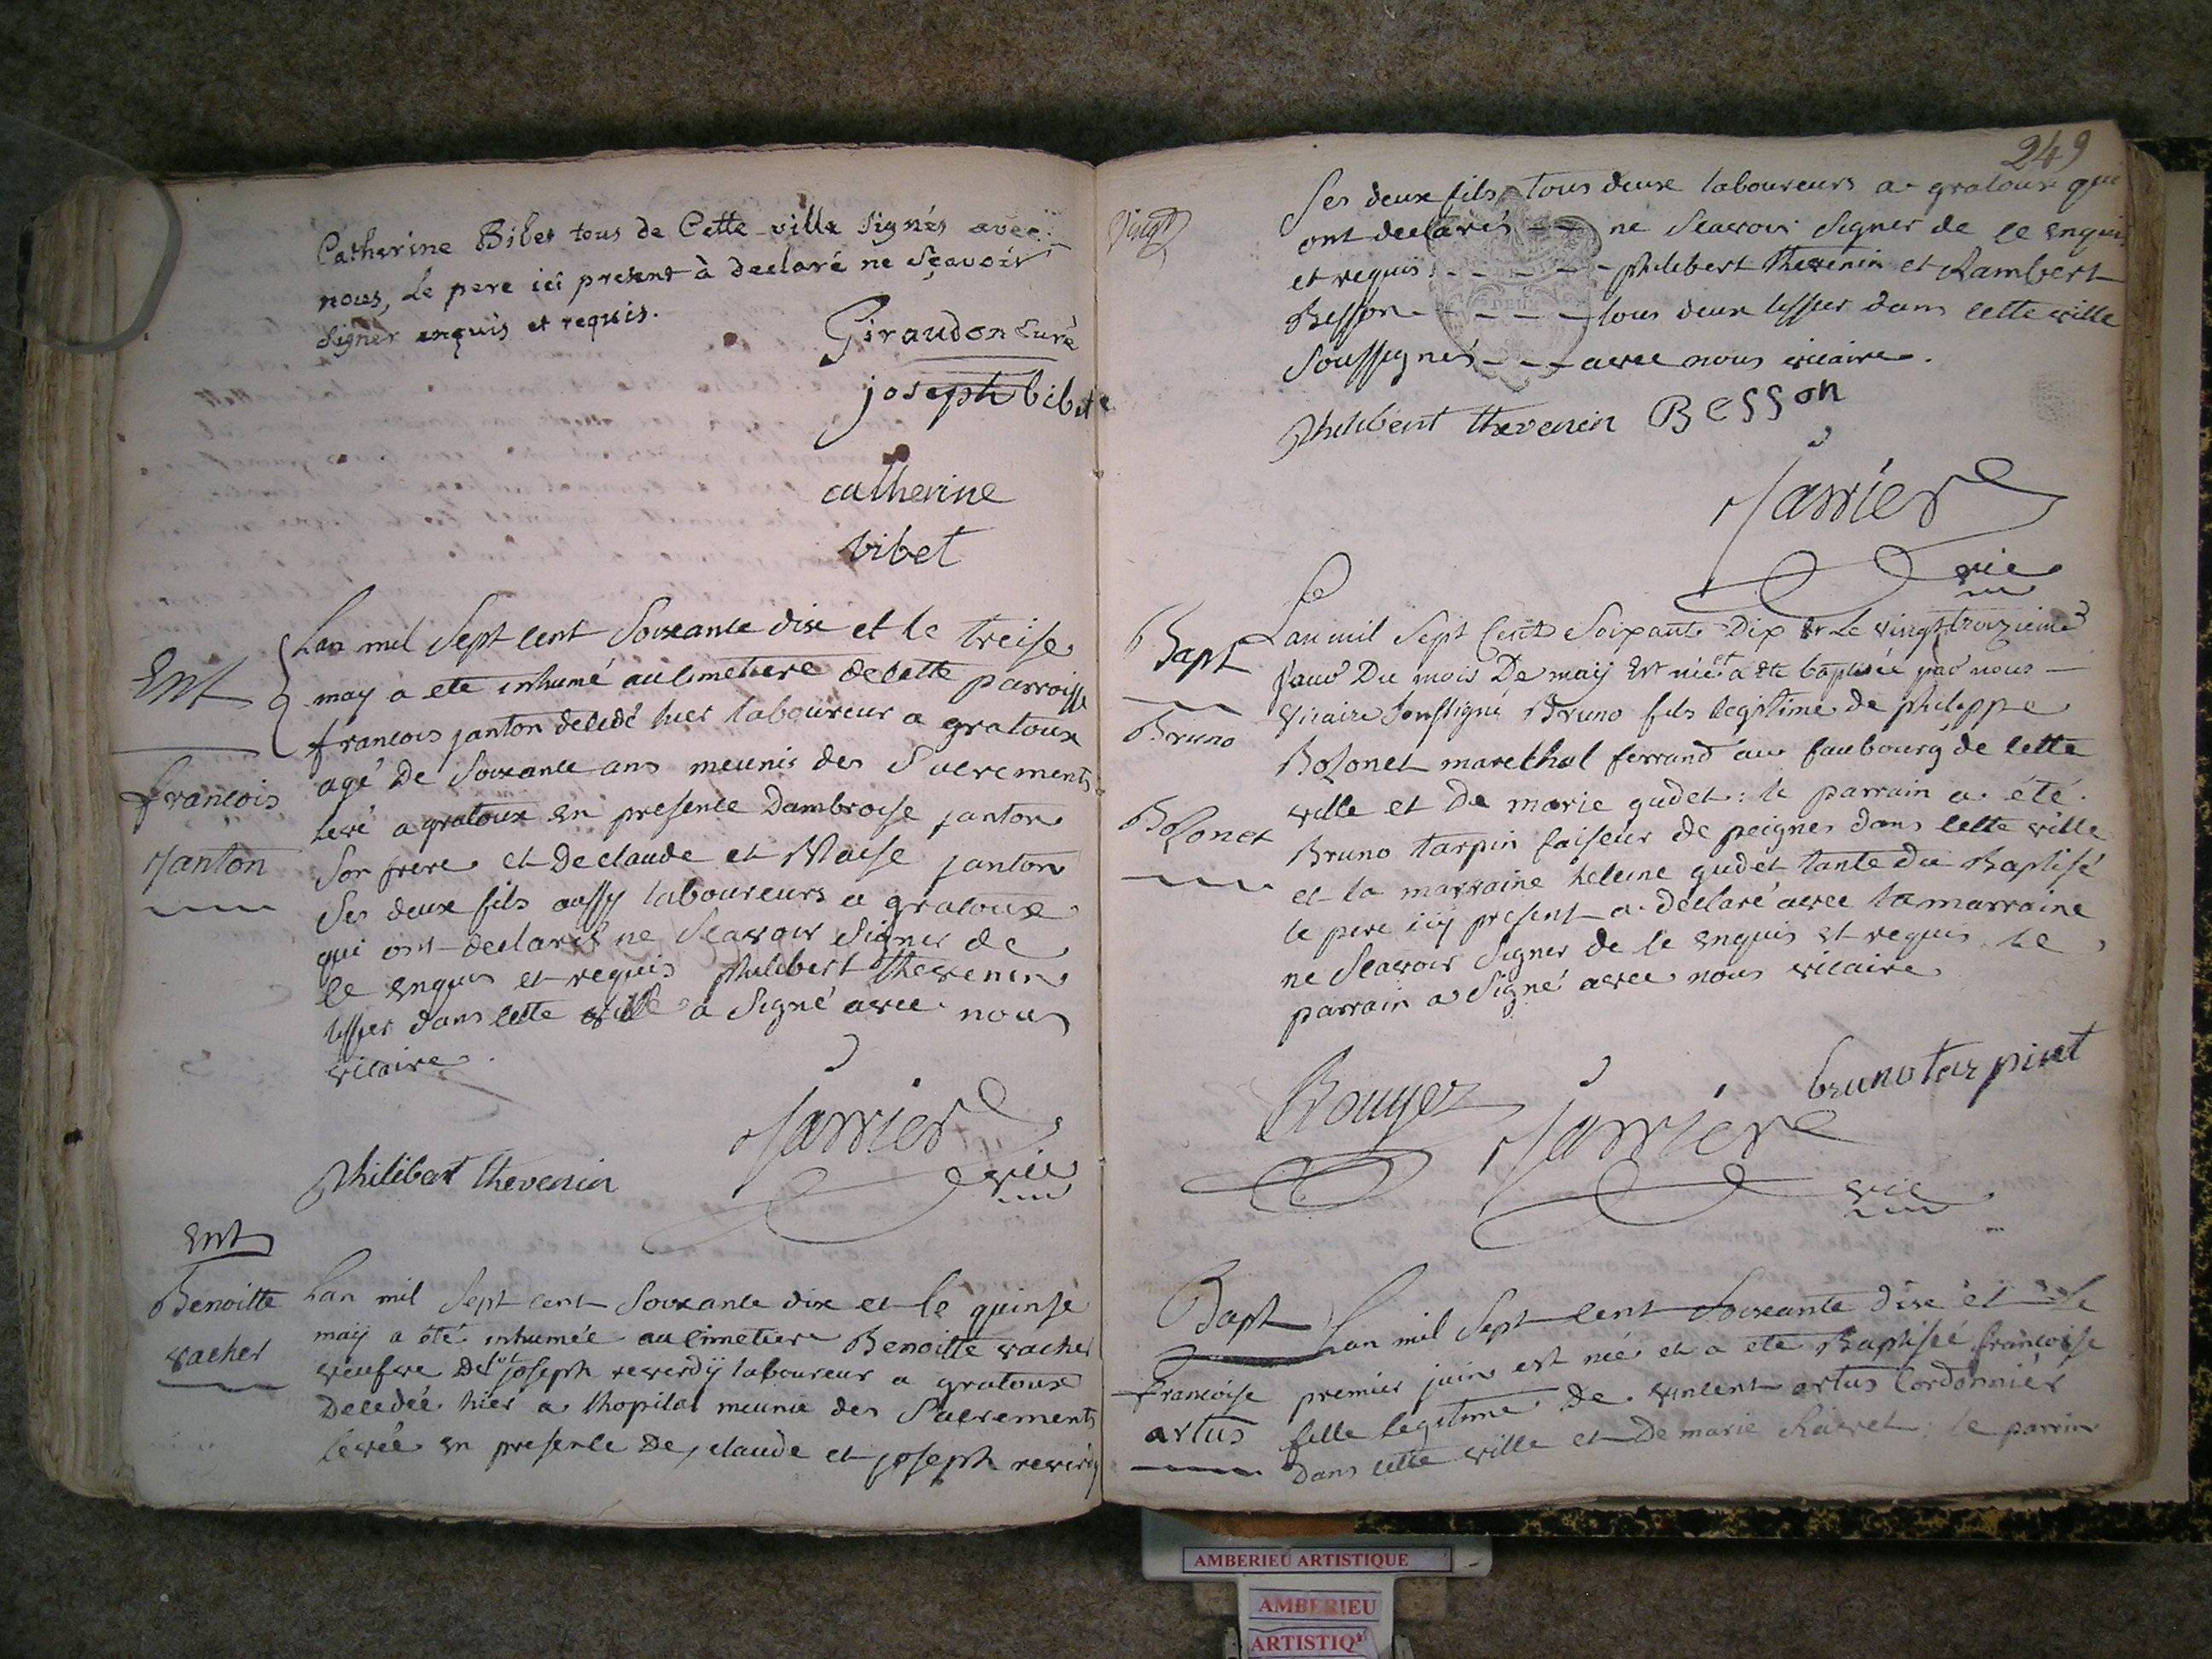 Catherine Bibet tous de Cette ville signés avec
nous, Le pere ici present à declaré ne sçavoir
signer enquis et requis.
Giraudon Curé
joseph bibet
catherine
bibet
Ent
françois
janton
Lan mil Sept cent Soixante dix et le treise
may a ete inhumé au cimetiere de cette parroisse
francois janton decedé hier laboureur a gratoux
agé De Soixante ans meunis des Sacrements
levé a gratoux en presence Dambroise janton
Son frere et De claude et Blaise janton
Ses deux fils aussy laboureurs a gratoux
qui ont declarés ne Scavoir Signer de
ce enquis et requis philibert thevenin
tissier dans cette ville a Signé avec nous
vicaire.
jarrier
vic
Philibert thevenin
Ent
Benoitte
vacher
Lan mil Sept cent Soixante dix et le quinse
maÿ a été inhumée au cimetiere Benoitte vacher
veufve De fut joseph reverdÿ laboureur a gratoux
Decedée hier a lhopital meunie des Sacrements
levée en presence De claude et joseph reverdy
249
Vingt
Ses deux fils tous deux laboureurs a gratoux qui
ont declarés - - ne Scavoir Signer de ce enquis
et requis - - - - - philibert thevenin et Rambert
Besson - - - - - tous deux tissier dans cette ville
Soussignés - - - avec nous vicaire.
Philibert thevenin Besson
jarrier
vic
Bapt
Bruno
Bozonet
Lan mil Sept Cent Soixante Dix et Le vingt troizieme
jour Du mois De maÿ Est né et a été baptisée par nous
Vicaire Soussigné Bruno fils legitime de philippe
Bozonet marechal ferrand au faubourg de cette
ville et De marie gudet: le parrain a été
Bruno tarpin faiseur de peignes dans cette ville
et la marraine heleine gudet tante du Baptisé
le pere icy present a declaré avec la marraine
ne Scavoir Signer de ce enquis et requis le
parrain a Signé avec nous vicaire
Rouyer
jarrier
bruno tarpint
vic
Bapt
francoise
artus
Lan mil Sept cent Soixante dix et le
premier juin est née et a ete Baptisée francoise
fille legitime De vincent artus Cordonnier
Dans cette ville et De marie le parrin
AMBERIEU ARTISTIQUE
AMBERIEU
ARTISTIQ